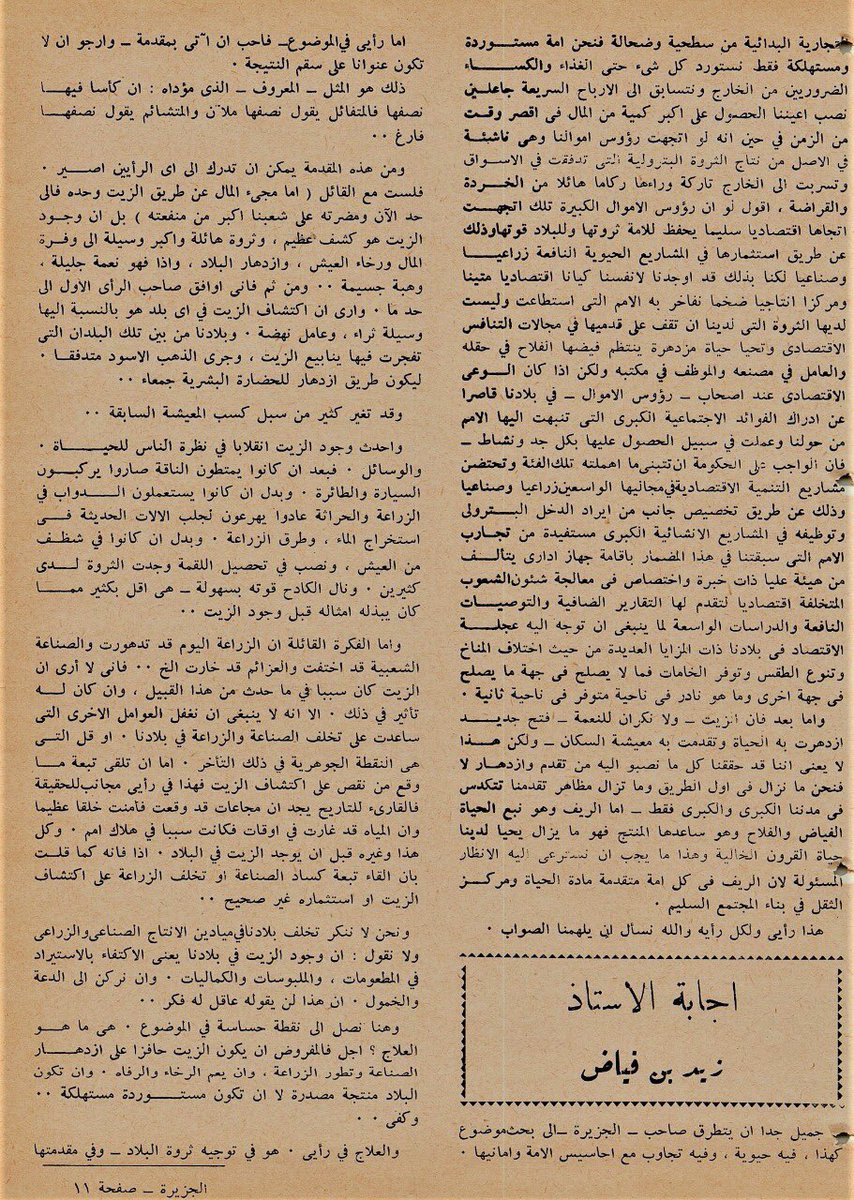 التجارية البدائية من سطحية وضحالة فنحن امة مستوردة
ومستهلكة فقط نستورد كل شىء حتى الغذاء والكساء
الضروريين من الخارج ونتسابق الى الارباح السريعة جاعلين
نصب اعيننا الحصول على اكبر كمية من المال فى اقصر وقت
من الزمن في حين انه لو اتجهت رؤوس اموالنا وهى ناشئة
في الاصل من نتاج الثروة البترولية التى تدفقت في الاسواق
وتسربت الى الخارج تاركة وراءها ركاما هائلا من الخردة
والقراضة ، اقول لو ان رؤوس الاموال الكبيرة تلك اتجهت
اتجاها اقتصاديا سليما يحفظ للامة ثروتها وللبلاد قوتها وذلك
عن طريق استثمارها في المشاريع الحيوية النافعة زراعيا
وصناعيا لكنا بذلك قد اوجدنا لانفسنا كيانا اقتصاديا متينا
ومركزا انتاجيا ضخما نفاخر به الامم التى استطاعت وليست
لديها الثروة التى لدينا ان تقف على قدميها في مجالات التنافس
الاقتصادى وتحيا حياة مزدهرة ينتظم فيضها الفلاح في حقله
والعامل في مصنعه والموظف في مكتبه ولكن اذا كان الوعى
الاقتصادى عند اصحاب ــ رؤوس الاموال ــ في بلادنا قاصرا
عن ادراك الفوائد الاجتماعية الكبرى التى تنبهت اليها الامم
من حولنا وعملت في سبيل الحصول عليها بكل جد ونشاط ــ
فان الواجب على الحكومة ان تتبنى ما اهملته تلك الفئة وتحتضن
مشاريع التنمية الاقتصادية في مجاليها الواسعين زراعيا وصناعيا
وذلك عن طريق تخصيص جانب من ايراد الدخل البترولى
وتوظيفه في المشاريع الانشائية الكبرى مستفيدة من تجارب
الامم التى سبقتنا في هذا المضمار باقامة جهاز ادارى يتألف
من هيئة عليا ذات خبرة واختصاص فى معالجة شئون الشعوب
المتخلفة اقتصاديا لتقدم لها التقارير الضافية والتوصيات
النافعة والدراسات الواسعة لما ينبغى ان توجه اليه عجلة
الاقتصاد فى بلادنا ذات المزايا العديدة من حيث اختلاف المناخ
وتنوع الطقس وتوفر الخامات فما لا يصلح فى جهة ما يصلح
فى جهة اخرى وما هو نادر فى ناحية متوفر فى ناحية ثانية ٠
واما بعد فان الزيت ــ ولا نكران للنعمة ــ فتح جديد
ازدهرت به الحياة وتقدمت به معيشة السكان ــ ولكن هذا
لا يعنى اننا قد حققنا كل ما نصبو اليه من تقدم وازدهار لا
فنحن ما نزال فى اول الطريق وما تزال مظاهر تقدمنا تتكدس
فى مدننا الكبرى والكبرى فقط ــ اما الريف وهو نبع الحياة
الفياض والفلاح وهو ساعدها المنتج فهو ما يزال يحيا لدينا
حياة القرون الخالية وهذا ما يجب ان نسترعى اليه الانظار
المسئولة لان الريف فى كل امة متقدمة مادة الحياة ومركز
الثقل في بناء المجتمع السليم ٠
هذا رأيى ولكل رأيه والله نسأل ان يلهمنا الصواب ٠
اجابة الاستاذ
زيد بن فياض
جميل جدا ان يتطرق صاحب ــ الجزيرة ــ الى بحث موضوع
كهذا ، فيه حيوية ، وفيه تجاوب مع احاسيس الامة وامانيها ٠
اما رأيى في الموضوع ــ فاحب ان آتى بمقدمة ــ وارجو ان لا
تكون عنوانا على سقم النتيجة ٠
ذلك هو المثل ــ المعروف ــ الذى مؤداه : ان كأسا فيها
نصفها فالمتفائل يقول نصفها ملآن والمتشائم يقول نصفها
فارغ ٠٠
ومن هذه المقدمة يمكن ان تدرك الى اى الرأيين اصير ٠
فلست مع القائل ( اما مجىء المال عن طريق الزيت وحده فالى
حد الآن ومضرته على شعبنا اكبر من منفعته ) بل ان وجود
الزيت هو كشف عظيم ، وثروة هائلة واكبر وسيلة الى وفرة
المال ورخاء العيش ، وازدهار البلاد ، واذا فهو نعمة جليلة ،
وهبة جسيمة ٠٠ ومن ثم فانى اوافق صاحب الرأى الاول الى
حد ما ٠ وارى ان اكتشاف الزيت في اى بلد هو بالنسبة اليها
وسيلة ثراء ، وعامل نهضة ٠ وبلادنا من بين تلك البلدان التى
تفجرت فيها ينابيع الزيت ، وجرى الذهب الاسود متدفقا ٠
ليكون طريق ازدهار للحضارة البشرية جمعاء ٠٠
وقد تغير كثير من سبل كسب المعيشة السابقة ٠٠
واحدث وجود الزيت انقلابا في نظرة الناس للحياة ٠
والوسائل ٠ فبعد ان كانوا يمتطون الناقة صاروا يركبون
السيارة والطائرة ٠ وبدل ان كانوا يستعملون الدواب في
الزراعة والحراثة عادوا يهرعون لجلب الالات الحديثة فى
استخراج الماء ، وطرق الزراعة ٠ وبدل ان كانوا في شظف
من العيش ، ونصب في تحصيل اللقمة وجدت الثروة لدى
كثيرين ٠ ونال الكادح قوته بسهولة ــ هى اقل بكثير مما
كان يبذله امثاله قبل وجود الزيت ٠٠
واما الفكرة القائلة ان الزراعة اليوم قد تدهورت والصناعة
الشعبية قد اختفت والعزائم قد خارت الخ ٠٠ فانى لا أرى ان
الزيت كان سببا في ما حدث من هذا القبيل ، وان كان له
تأثير في ذلك ٠ الا انه لا ينبغى ان نغفل العوامل الاخرى التى
ساعدت على تخلف الصناعة والزراعة في بلادنا ٠ او قل التى
هى النقطة الجوهرية في ذلك التأخر ٠ اما ان تلقى تبعة ما
وقع من نقص على اكتشاف الزيت فهذا في رأيى مجانب للحقيقة
فالقارىء للتاريخ يجد ان مجاعات قد وقعت فأفنت خلقا عظيما
وان المياه قد غارت في اوقات فكانت سببا في هلاك امم ٠ وكل
هذا وغيره قبل ان يوجد الزيت في البلاد ٠ اذا فانه كما قلت
بان القاء تبعة كساد الصناعة او تخلف الزراعة على اكتشاف
الزيت او استثماره غير صحيح ٠٠
ونحن لا ننكر تخلف بلادنا في ميادين الانتاج الصناعى والزراعى
ولا نقول : ان وجود الزيت في بلادنا يعنى الاكتفاء بالاستيراد
في المطعومات ، والملبوسات والكماليات ٠ وان نركن الى الدعة
والخمول ٠ ان هذا لن يقوله عاقل له فكر ٠٠
وهنا نصل الى نقطة حساسة في الموضوع ٠ هى ما هو
العلاج ؟ اجل فالمفروض ان يكون الزيت حافزا على ازدهار
الصناعة وتطور الزراعة ، وان يعم الرخاء والرفاه ٠ وان تكون
البلاد منتجة مصدرة لا ان تكون مستوردة مستهلكة ٠٠
وكفى ٠٠
والعلاج في رأيى ٠ هو في توجيه ثروة البلاد ــ وفي مقدمتها
الجزيرة ــ صفحة ١١